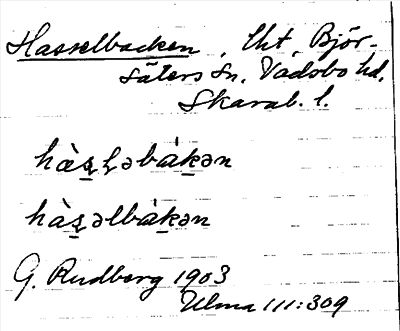 Hasselbacken, lht, Björ-
säters sn, Vadsbo hd.
Skarab. l.
hàʂḷəbákən
hàʂəlbákən
G. Rudberg 1903
Ulma 111:309